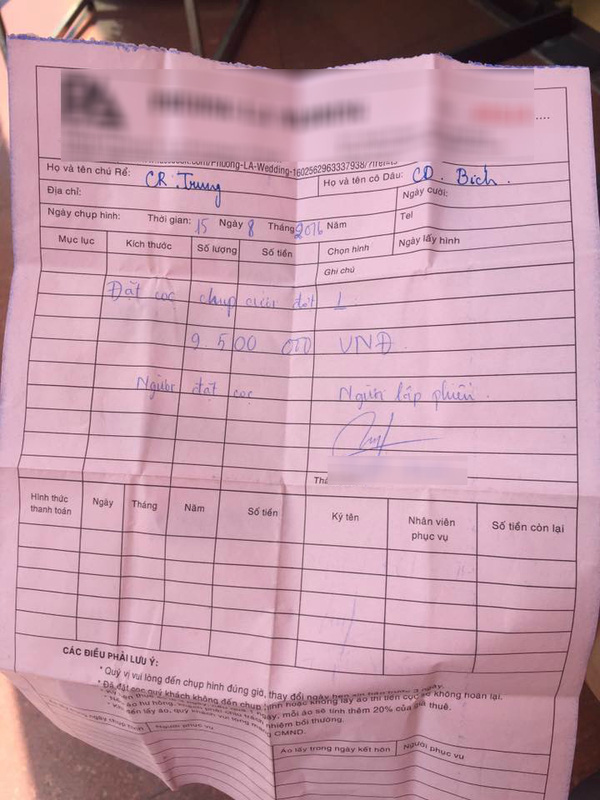 Phuong-LA-Wedding-1602562963337938/?fref=ts
Họ và tên chú Rể: CR. Trung Họ và tên cô Dâu: CD. Bích.
Địa chỉ: Ngày cưới:
Ngày chụp hình: Thời gian: 15 Ngày 8 Tháng 2016 Năm Tel
Mục lục Kích thước Số lượng Số tiền Chọn hình Ngày lấy hình
Ghi chú
Đặt cọc chụp cưới đợt 1
9 500 000 VNĐ.
Người đặt cọc Người lập phiếu.
Hình thức thanh toán Ngày Tháng Năm Số tiền Ký tên Nhân viên phục vụ Số tiền còn lại
CÁC ĐIỀU PHẢI LƯU Ý:
* Quý vị vui lòng đến chụp hình đúng giờ, thay đổi ngày
* Đã đặt cọc quý khách không đến chụp hình hoặc không lấy áo thì tiền cọc sẽ không hoàn lại.
mỗi áo sẽ tính thêm 20% của giá thuê.
nhiệm bồi thường.
CMND.
Người phục vụ
Áo lấy trong ngày kết hôn Người phục vụ